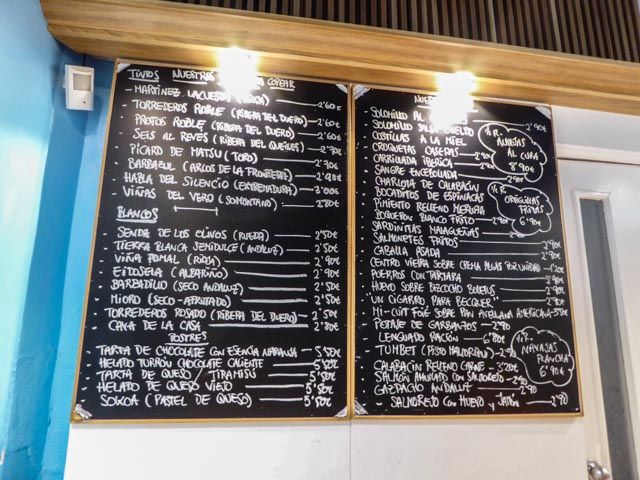 TINTOS NUESTROS COPEAR
- MARTÍNEZ LACUESTA 2'60€
- TORREDEROS ROBLE (RIBERA DEL DUERO) 2'60€
- PROTOS ROBLE (RIBERA DEL DUERO) 2'60€
- SEIS AL REVES (RIBERA DEL QUEILES) 2'60€
- PÍCARO DE MATSU (TORO) 2'70€
- BARBAZUL (ARCOS DE LA FRONTERA) 2'90€
- HABLA DEL SILENCIO (EXTREMADURA) 3'00€
- VIÑAS DEL VERO (SOMONTANO) 2'80€
BLANCOS
- SENDA DE LOS OLIVOS (RUEDA) 2'50€
- TIERRA BLANCA SEMIDULCE (ANDALUZ) 2'50€
- VIÑA POMAL (RIOJA) 2'90€
- EIDOSELA (ALBARIÑO) 2'90€
- BARBADILLO (SECO ANDALUZ) 2'50€
- MIORO (SECO-AFRUTADO) 2'50€
- TORREDEROS ROSADO (RIBERA DEL DUERO) 2'50€
- CAVA DE LA CASA 2'80€
POSTRES
- TARTA DE CHOCOLATE CON ESENCIA NARANJA 5'50€
- HELADO TURRÓN CHOCOLATE CALIENTE 5'50€
- TARTA DE QUESO / TIRAMISU 5'50€
- HELADO DE QUESO VIEJO 5'50€
- SOKOA (PASTEL DE QUESO) 5'50€
- SOLOMILLO AL
- SOLOMILLO 2'90€
- COSTILLAS A LA MIEL
- CROQUETAS CASERAS
- CARRILLADA IBERICA 2'90
- SANGRE ENCEBOLLADA
- CHARLOTA DE CALABACÍN
- BOCADITOS DE ESPINACAS
- PIMIENTO RELLENO MERLUZA
- BOQUERON BLANCO FRITO 2'90
- SARDINITAS MALAGUEÑAS
- SALMONETES FRITOS
- CABALLA ASADA 2'90
- CENTRO VIEIRA SOBRE CREMA ALGAS POR UNIDAD
- PUERROS CON TARTARA 2'90
- HUEVO SOBRE BIZCOCHO BOLETUS
- "UN CIGARRO PARA BECQUER" 2'90
- MI-CUIT FOIE SOBRE PAN AVELLANA AMERICANA 3'50€
- POTAJE DE GARBANZOS 2'90
LENGUADO RACIÓN 6'80€
- TUMBET (PISTO MALLORQUIN) 2'90
CALABACÍN RELLENO CARNE 3'20€
- SALMÓN AHUMADO CON SALMOREJO 2'90
- GAZPACHO ANDALUZ 2'90
- SALMOREJO CON HUEVO Y JAMÓN 2'90
ALMEJAS
AL CURA
8'90€
ORTIGUILLAS
FRITAS
6'90€
NAVAJAS
PLANCHA
6'90€